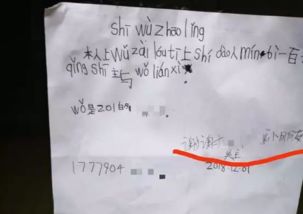 shī wù zhāo lǐng
本人上wǔ zài lóu tī上shí dào人mín bì一百
qǐng shī主与wǒ lián xì
wǒ是2016
谢谢
1777904
2018.12.01